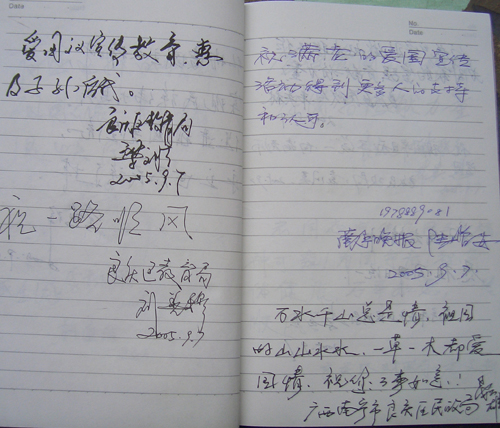 爱国主义宣传教育，惠
及子孙后代。
良庆区教育局
2005.9.7
祝一路顺风
良庆区教育局
刘
2005.9.7
No.
Date
祝 的爱国宣传
活动得到更多人的支持
和认可。
南宁晚报
2005.9.7.
万水千山总是情，祖国
的山山水水，一草一木都爱
国情，祝你万事如意！
广西南宁市良庆区民政局